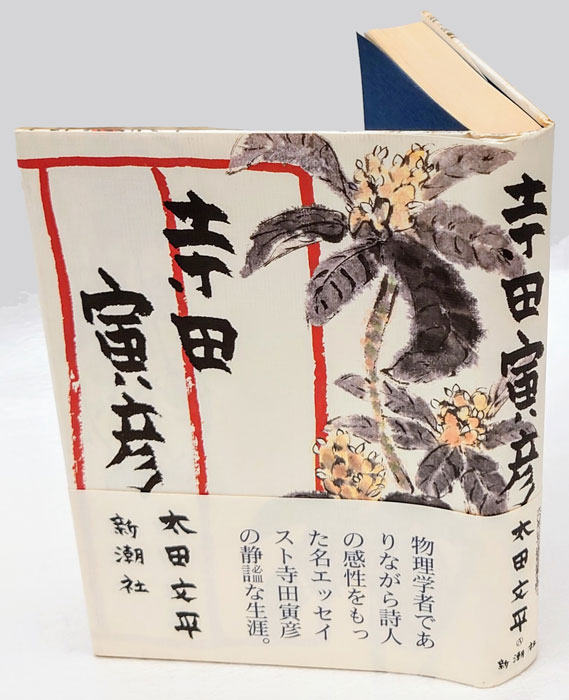 寺田
寅彦
太田文平
新潮社
物理学者であ
りながら詩人
の感性をもっ
た名エッセイ
スト寺田寅彦
の静謐な生涯。
寺田寅彦
太田文平
新潮社